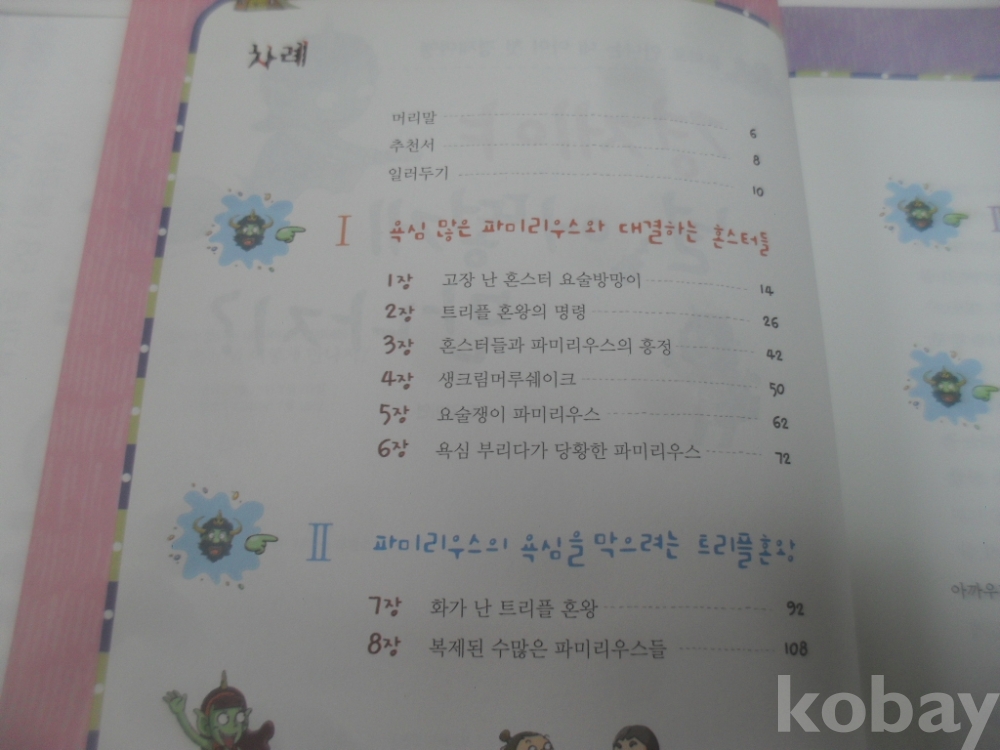 차례
머리말 6
추천서 8
일러두기 10
Ⅰ 욕심 많은 파미리우스와 대결하는 혼스터들
1장 고장 난 혼스터 요술방망이 14
2장 트리플 혼왕의 명령 26
3장 혼스터들과 파미리우스의 흥정 42
4장 생크림머루쉐이크 50
5장 요술쟁이 파미리우스 62
6장 욕심 부리다가 당황한 파미리우스 72
Ⅱ 파미리우스의 욕심을 막으려는 트리플혼왕
7장 화가 난 트리플 혼왕 92
8장 복제된 수많은 파미리우스들 108
아까우
kobay